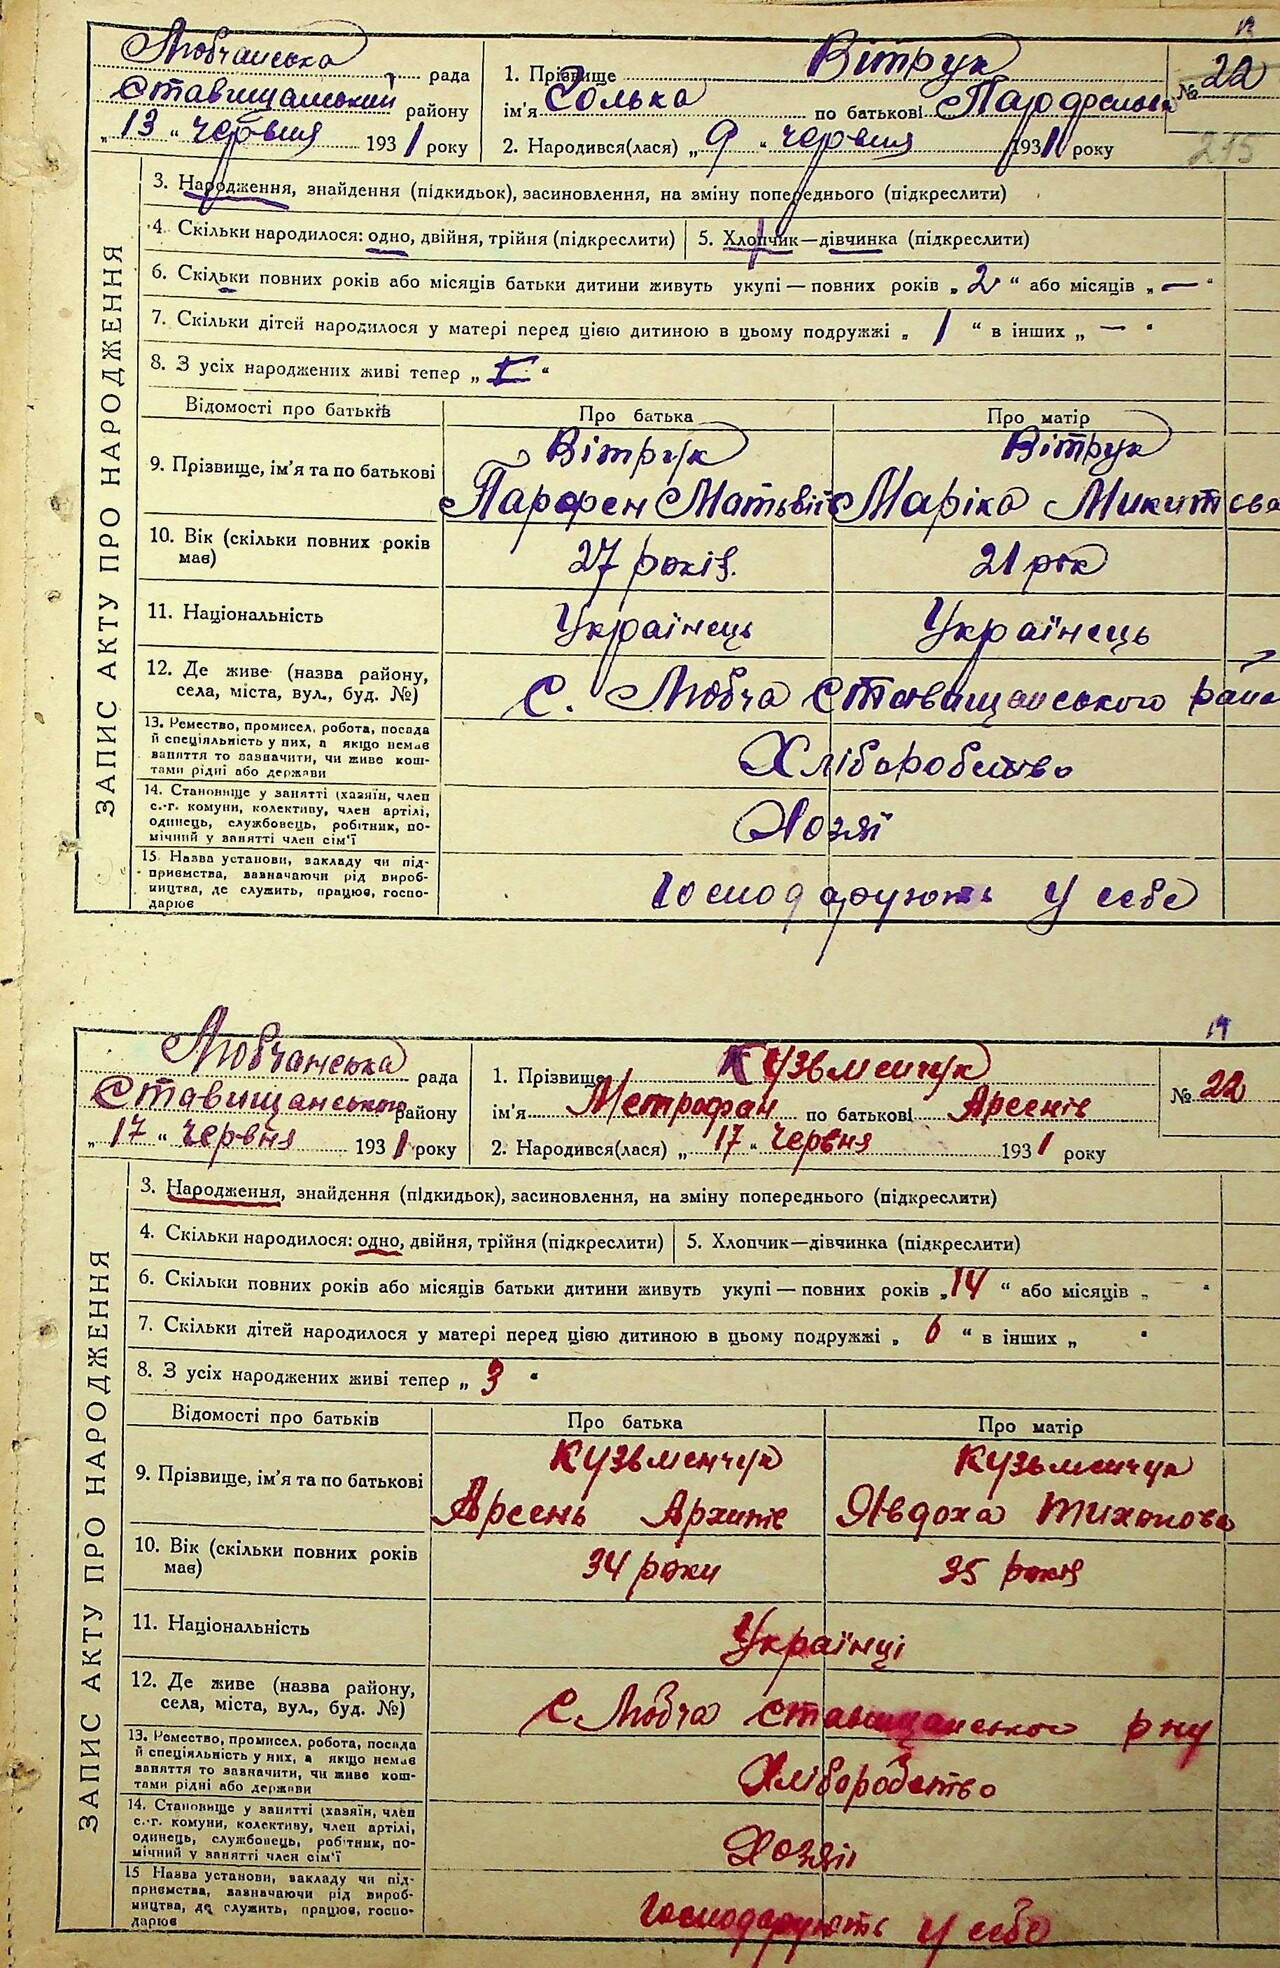 13
Любчанська рада
Ставищанський району
„ 13 “ червня 1931 року
1. Прізвище Вітрук
ім'я Солька по батькові
2. Народився(лася) „ 9 “ червня 1931 року
№ 22
215
ЗАПИС АКТУ ПРО НАРОДЖЕННЯ
3. Народження, знайдення (підкидьок), засиновлення, на зміну попереднього (підкреслити)
4. Скільки народилося: одно, двійня, трійня (підкреслити)
5. Хлопчик—дівчинка (підкреслити)
6. Скільки повних років або місяців батьки дитини живуть укупі — повних років „ 2 “ або місяців „ — “
7. Скільки дітей народилося у матері перед цією дитиною в цьому подружжі „ 1 “ в інших „ — “
8. З усіх народжених живі тепер „ I “
Відомості про батьків
Про батька
Про матір
9. Прізвище, ім'я та по батькові
Вітрук
Парфен Матьвії
Вітрук
Маріка Микитєва
10. Вік (скільки повних років
має)
27 років.
21 рок
11. Національність
Українець
Українець
12. Де живе (назва району,
села, міста, вул., буд. №)
с. Любча Ставищанського райо
13. Ремество, промисел, робота, посада
й спеціяльність у них, а якщо немає
заняття то зазначити, чи живе кош-
тами рідні або держави
Хліборобство
14. Становище у занятті (хазяїн, член
с.-г. комуни, колективу, член артілі,
одинець, службовець, робітник, по-
мічний у занятті член сім'ї
Хозяї
15. Назва установи, закладу чи під-
приємства, зазначаючи рід вироб-
ництва, де служить, працює, госпо-
дарює
Господарують у себе
14
Любчанська рада
Ставищанського району
„ 17 “ червня 1931 року
1. Прізвище Кузьменчук
ім'я Метрофан по батькові Арсенів
2. Народився(лася) „ 17 “ червня 1931 року
№ 22
ЗАПИС АКТУ ПРО НАРОДЖЕННЯ
3. Народження, знайдення (підкидьок), засиновлення, на зміну попереднього (підкреслити)
4. Скільки народилося: одно, двійня, трійня (підкреслити)
5. Хлопчик—дівчинка (підкреслити)
6. Скільки повних років або місяців батьки дитини живуть укупі — повних років „ 14 “ або місяців „ “
7. Скільки дітей народилося у матері перед цією дитиною в цьому подружжі „ 6 “ в інших „ “
8. З усіх народжених живі тепер „ 3 “
Відомості про батьків
Про батька
Про матір
9. Прізвище, ім'я та по батькові
Кузьменчук
Арсень Архипів
Кузьменчук
Явдоха Тихонова
10. Вік (скільки повних років
має)
34 роки
35 років
11. Національність
Українці
12. Де живе (назва району,
села, міста, вул., буд. №)
с Любча Ставищанського р ну
13. Ремество, промисел, робота, посада
й спеціяльність у них, а якщо немає
заняття то зазначити, чи живе кош-
тами рідні або держави
Хліборобство
14. Становище у занятті (хазяїн, член
с.-г. комуни, колективу, член артілі,
одинець, службовець, робітник, по-
мічний у занятті член сім'ї
Хозяїі
15 Назва установи, закладу чи під-
приємства, зазначаючи рід вироб-
ництва, де служить, працює, госпо-
дарює
Господарують у себе